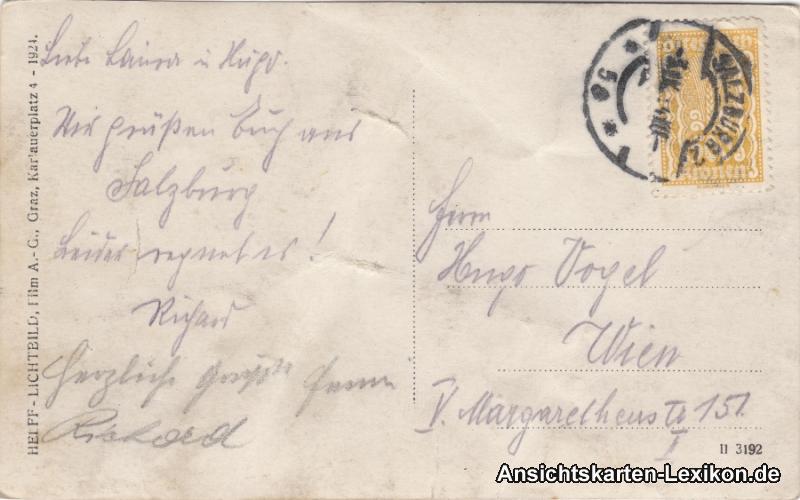 HELFF-LICHTBILD, Film A.-G., Graz, Karlauerplatz 4 - 1924.
Liebe Laura u Hugo.
Wir grüßen Euch aus
Salzburg
Leider regnet es!
Richard
Herzliche Grüße
Rickard
SALZBURG 2
* 5a *
Kronen
Herrn
Hugo Vogel
Wien
V. Margarethenstr 151.
I
II 3192
Ansichtskarten-Lexikon.de